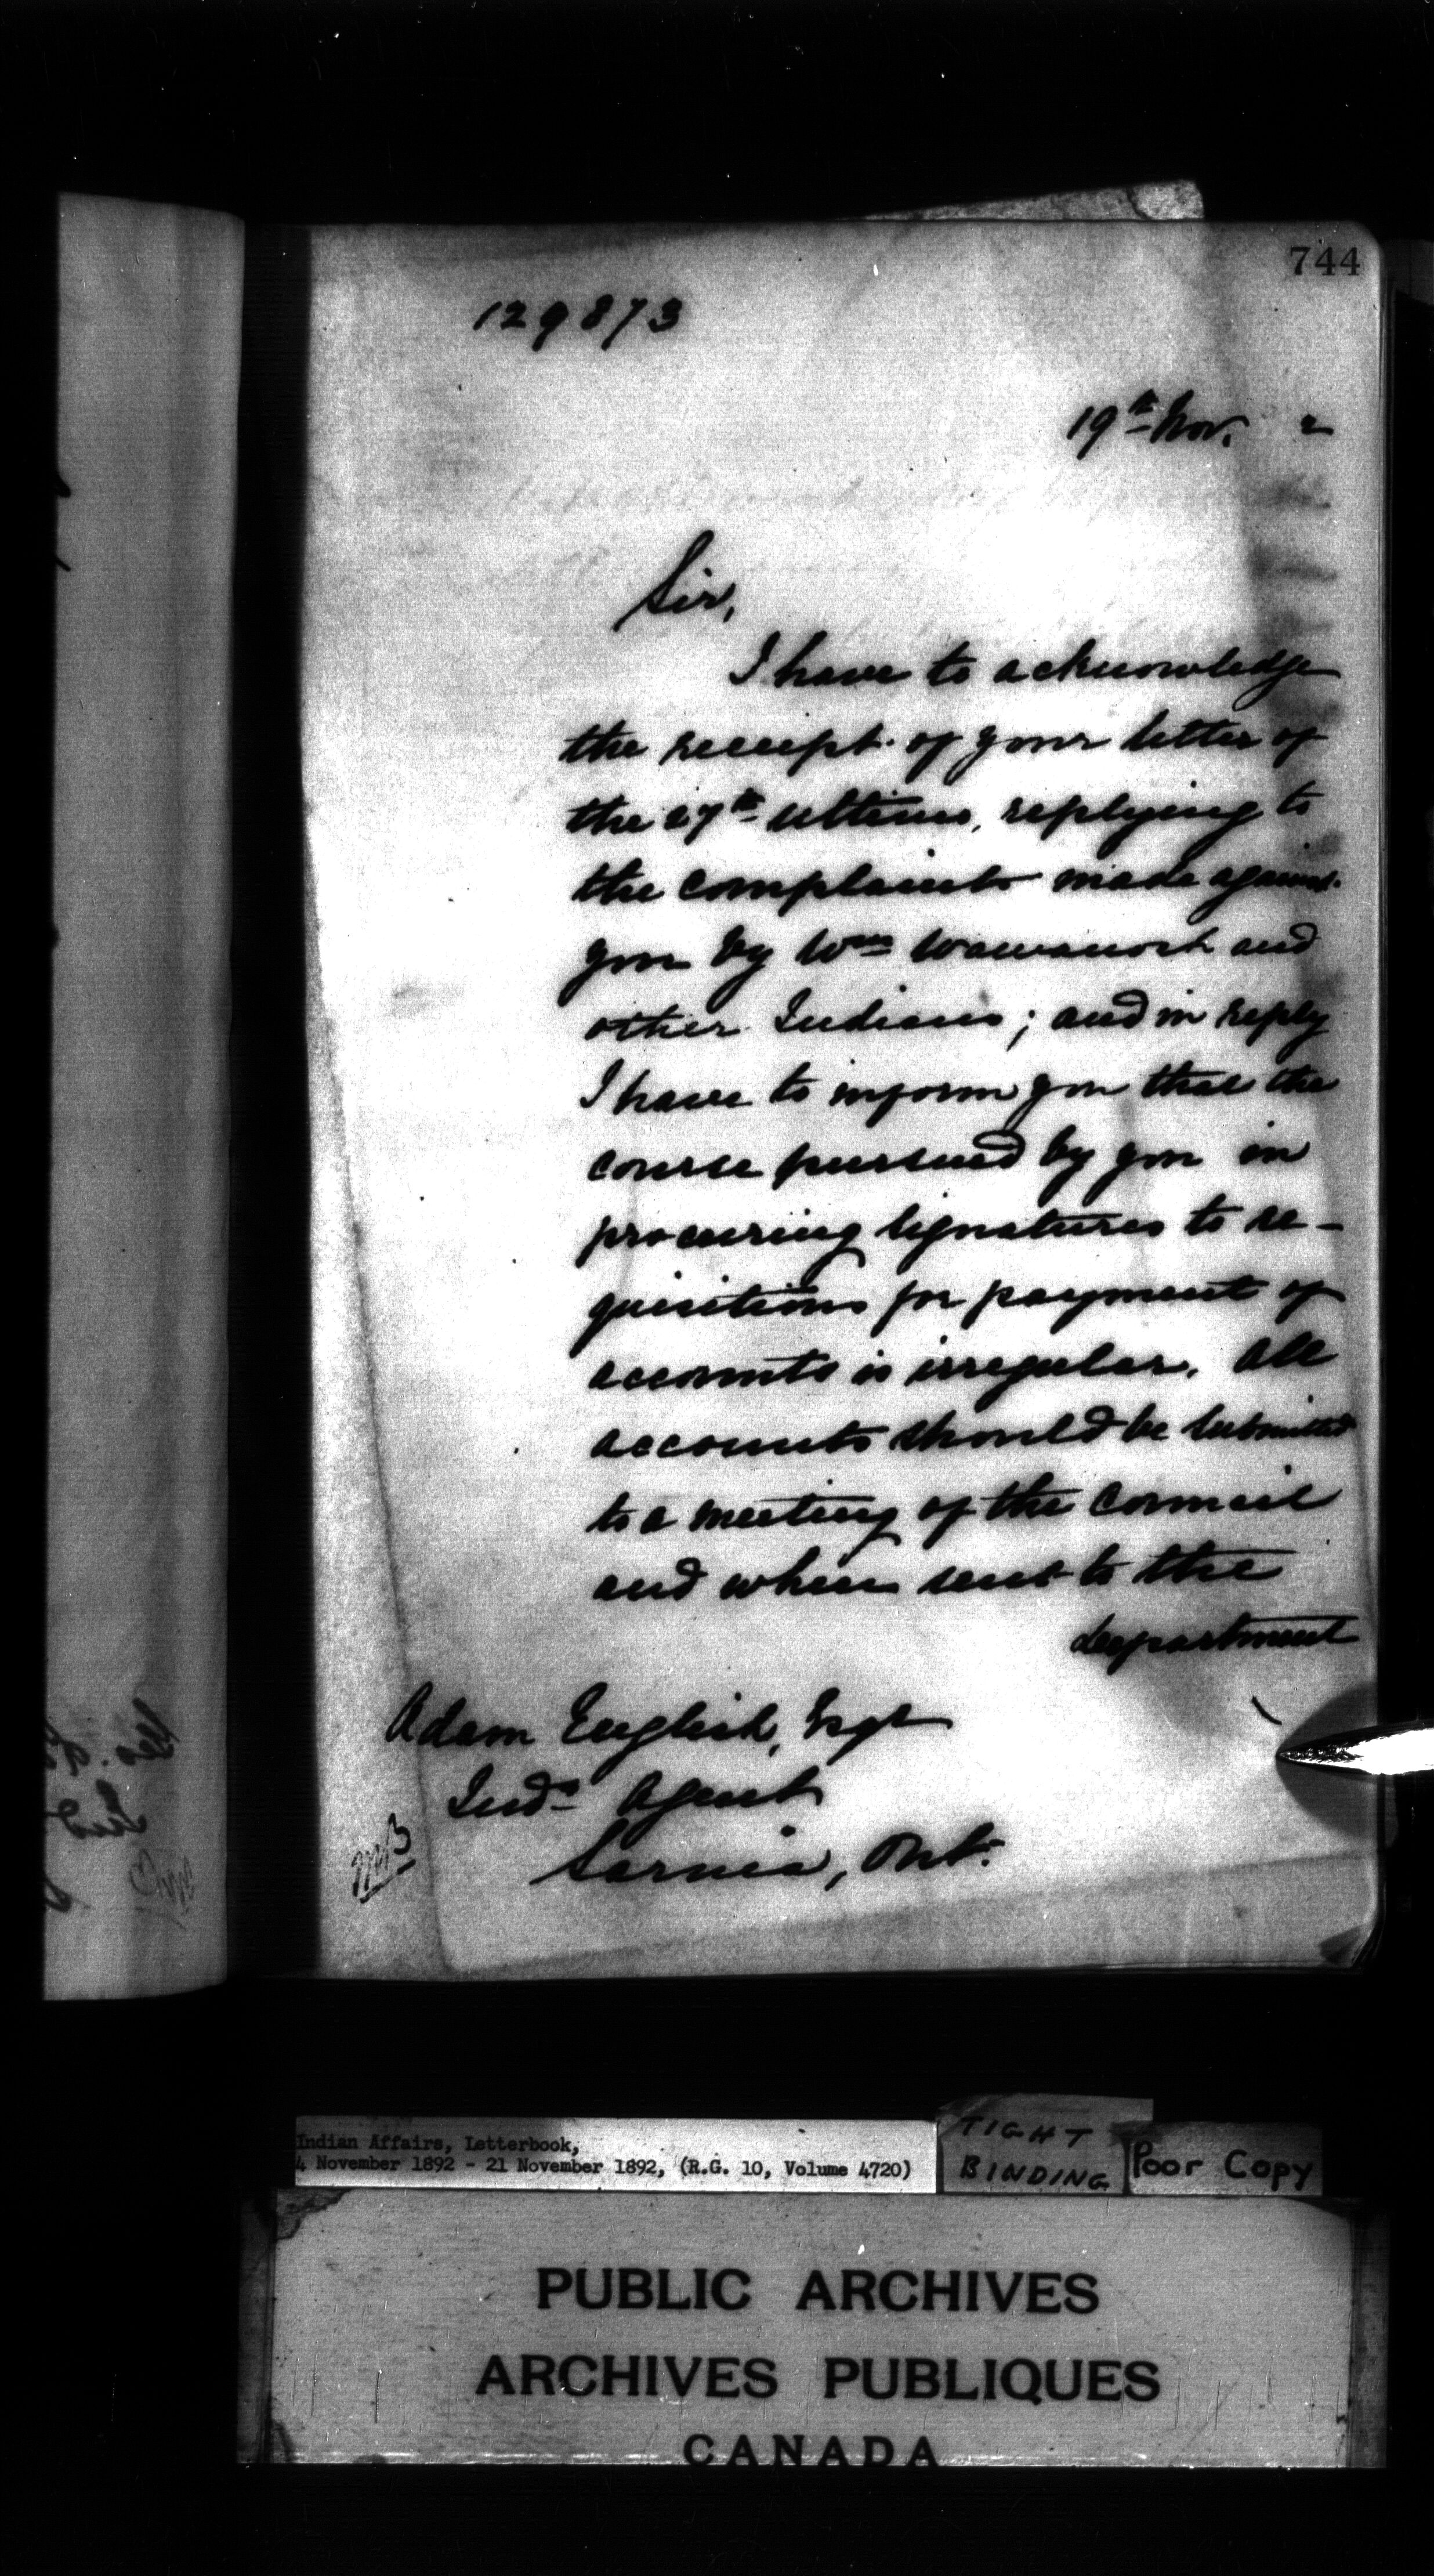 744
129873
19th Nov. 2
Sir,
I have to acknowledge
the receipt of your letter of
the 27th ultimo, replying to
the complaints made against
you by Wm Wawanosh and
other Indians; and in reply
I have to inform you that the
course pursued by you in
procuring signatures to re-
quisitions for payment of
accounts is irregular. All
accounts should be submitted
to a meeting of the Council
and when sent to the
department
Adam English, Esqr
Indn Agent
Sarnia, Ont.
Indian Affairs, Letterbook,
4 November 1892 - 21 November 1892, (R.G. 10, Volume 4720)
TIGHT
BINDING
Poor Copy
PUBLIC ARCHIVES
ARCHIVES PUBLIQUES
CANADA